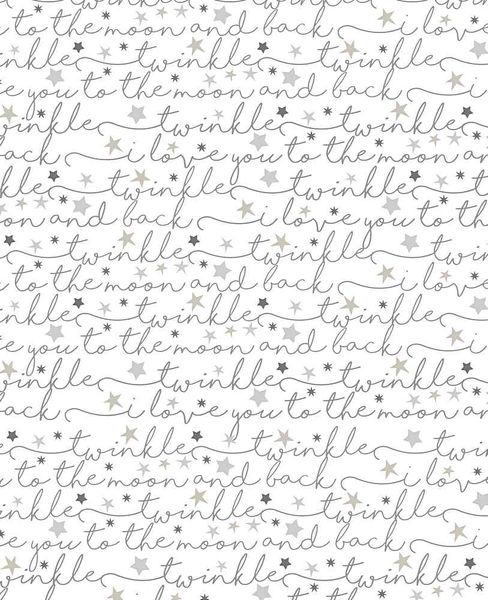 to the moon and back i love
inkle twinkle twinkle
e you to the moon and back i
winkle twinkle twinkle
back i love you to the moon an
twinkle twinkle
on and back i love you to the
inkle twinkle twinkle
to the moon and back i love
inkle twinkle twinkle
e you to the moon and back i
winkle twinkle twinkle
back i love you to the moon an
twinkle twinkle
to the moon and back i
inkle twinkle twinkle
e you to the moon and back i
winkle twinkle twinkle